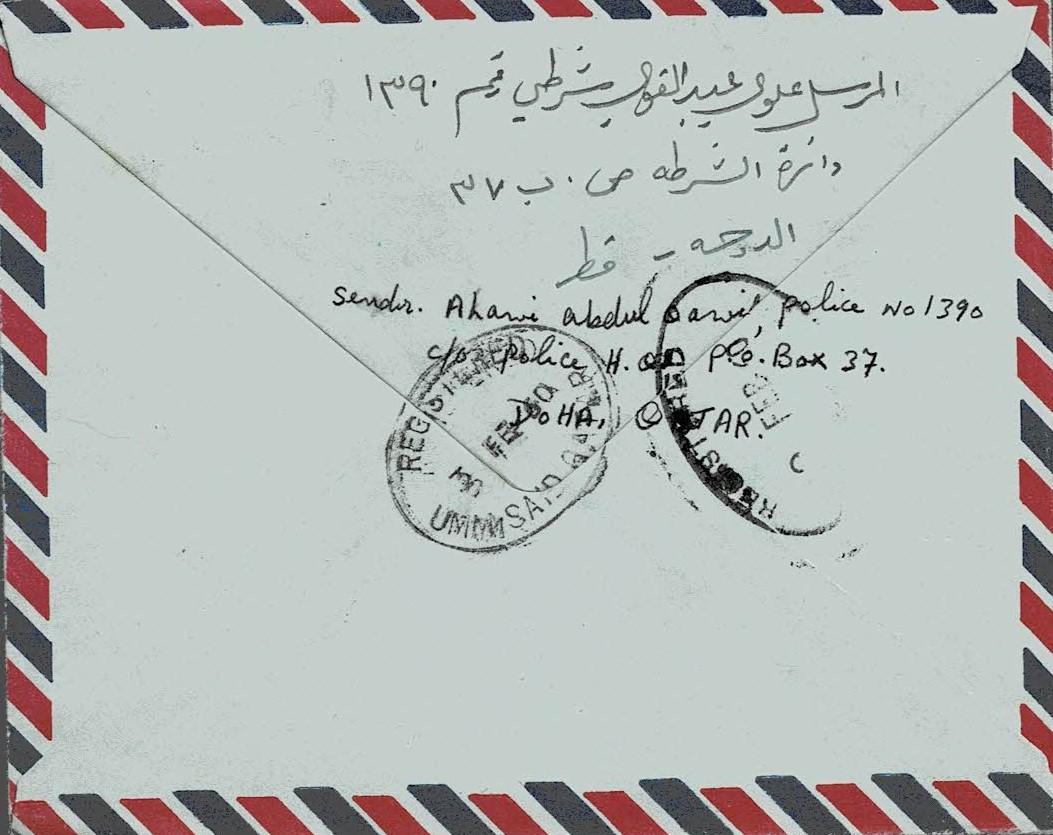 المرسل علوي عبد القوي شرطي رقم ١٣٩٠
دائرة الشرطه ص.ب ٣٧
الدوحه - قطر
Sender. Alawi abdul Qawi, police No 1390
c/o police H.Q P.O. Box 37.
DOHA, QATAR.
REGISTERED
FEB
UMM SAID QATAR
REGISTERED
FEB